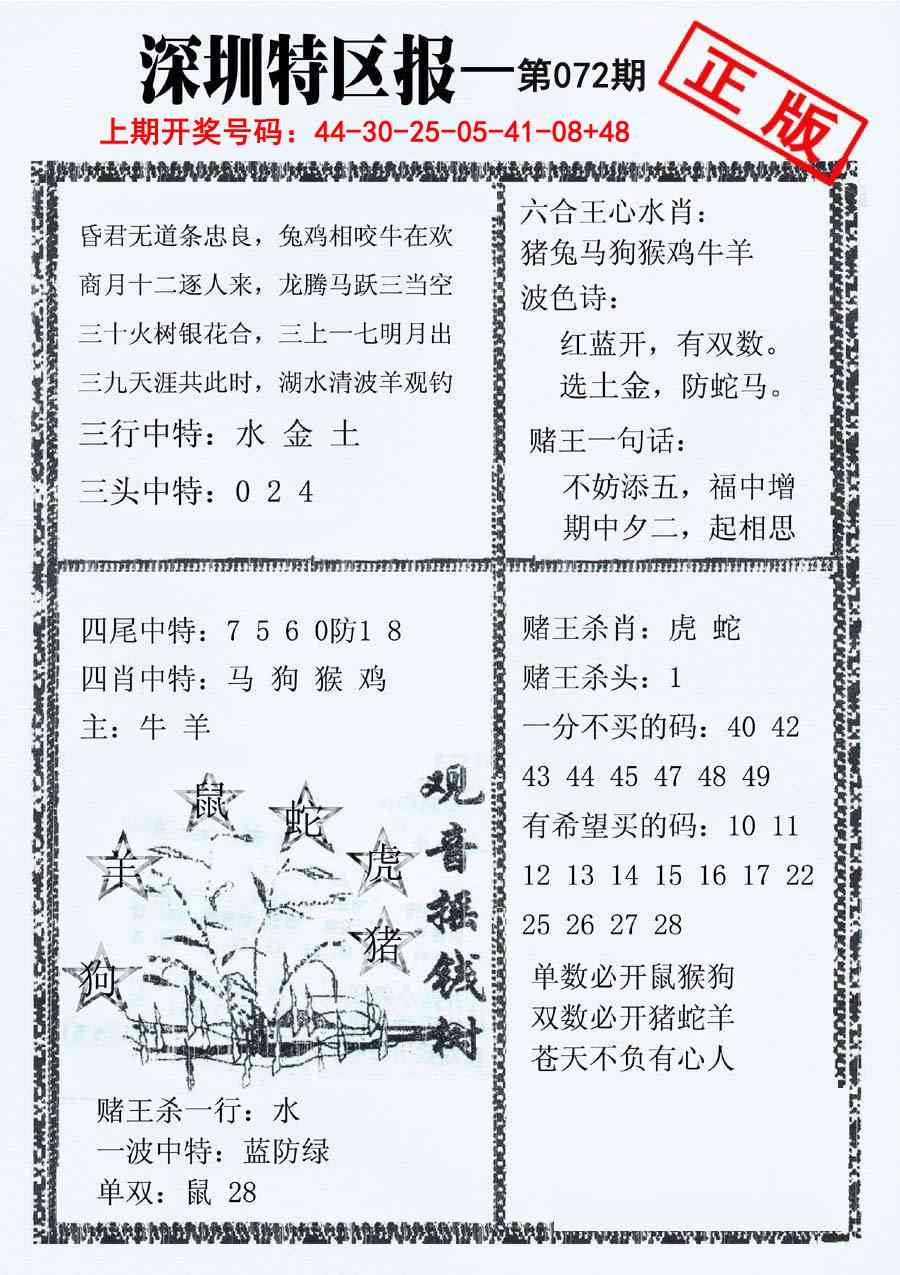 深圳特区报—第072期
正版
上期开奖号码：44-30-25-05-41-08+48
昏君无道条忠良，兔鸡相咬牛在欢
商月十二逐人来，龙腾马跃三当空
三十火树银花合，三上一七明月出
三九天涯共此时，湖水清波羊观钓
三行中特：水 金 土
三头中特：0 2 4
六合王心水肖：
猪兔马狗猴鸡牛羊
波色诗：
红蓝开，有双数。
选土金，防蛇马。
赌王一句话：
不妨添五，福中增
期中夕二，起相思
四尾中特：7 5 6 0防1 8
四肖中特：马 狗 猴 鸡
主：牛 羊
鼠
蛇
羊
虎
猪
狗
观音摇钱树
赌王杀一行：水
一波中特：蓝防绿
单双：鼠 28
赌王杀肖：虎 蛇
赌王杀头：1
一分不买的码：40 42
43 44 45 47 48 49
有希望买的码：10 11
12 13 14 15 16 17 22
25 26 27 28
单数必开鼠猴狗
双数必开猪蛇羊
苍天不负有心人